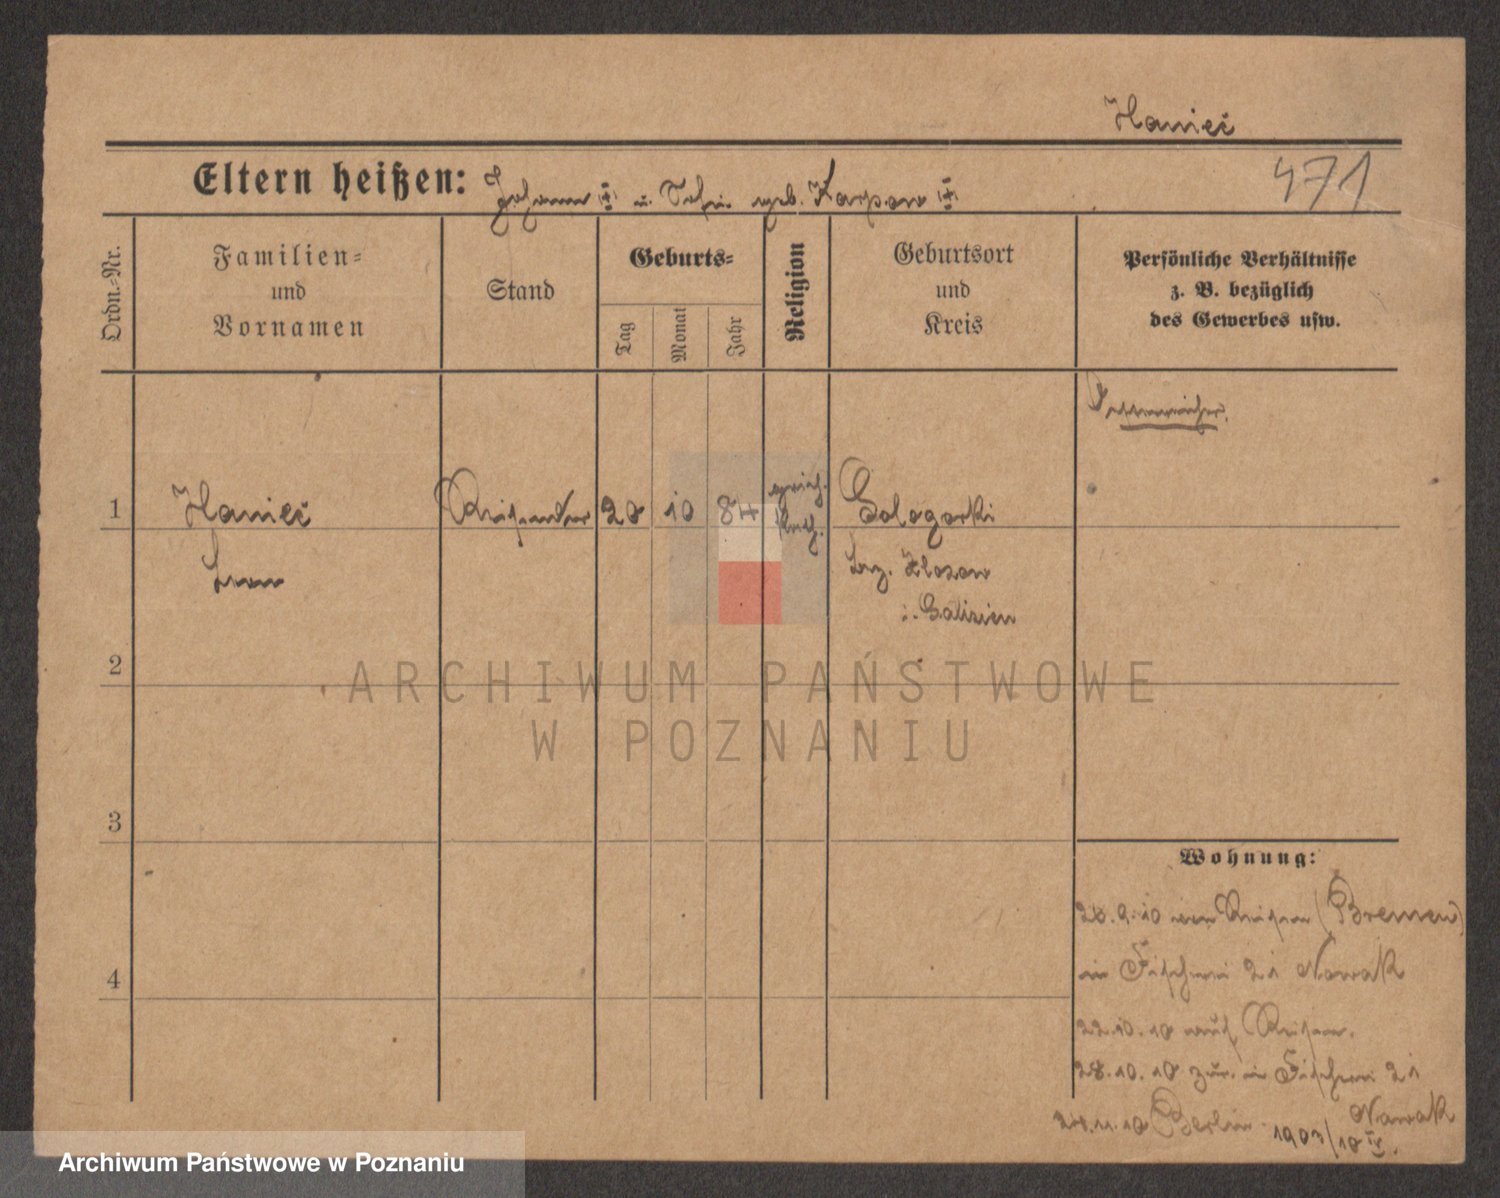 Hanieć
Eltern heißen: Johann u. Sofie geb. Karpow
471
Ordn.-Nr.
Familien-
und
Vornamen
Stand
Geburts-
Tag
Monat
Jahr
Religion
Geburtsort
und
Kreis
Persönliche Verhältnisse
z. B. bezüglich
des Gewerbes usw.
Oesterreicher.
1
Hanieć
Reisender
28
10
84
griech.
kath.
Gologorki
Bez. Zlozow
i. Galizien
2
3
4
Wohnung:
von Reisen (Bremen)
in Fischerei 21 Nowak
22.10.10 auf Reisen.
28.10.10 zur. in Fischerei 21
Nowak
24.11.10 Berlin.
1903/10 IV.
ARCHIWUM PAŃSTWOWE
W POZNANIU
Archiwum Państwowe w Poznaniu